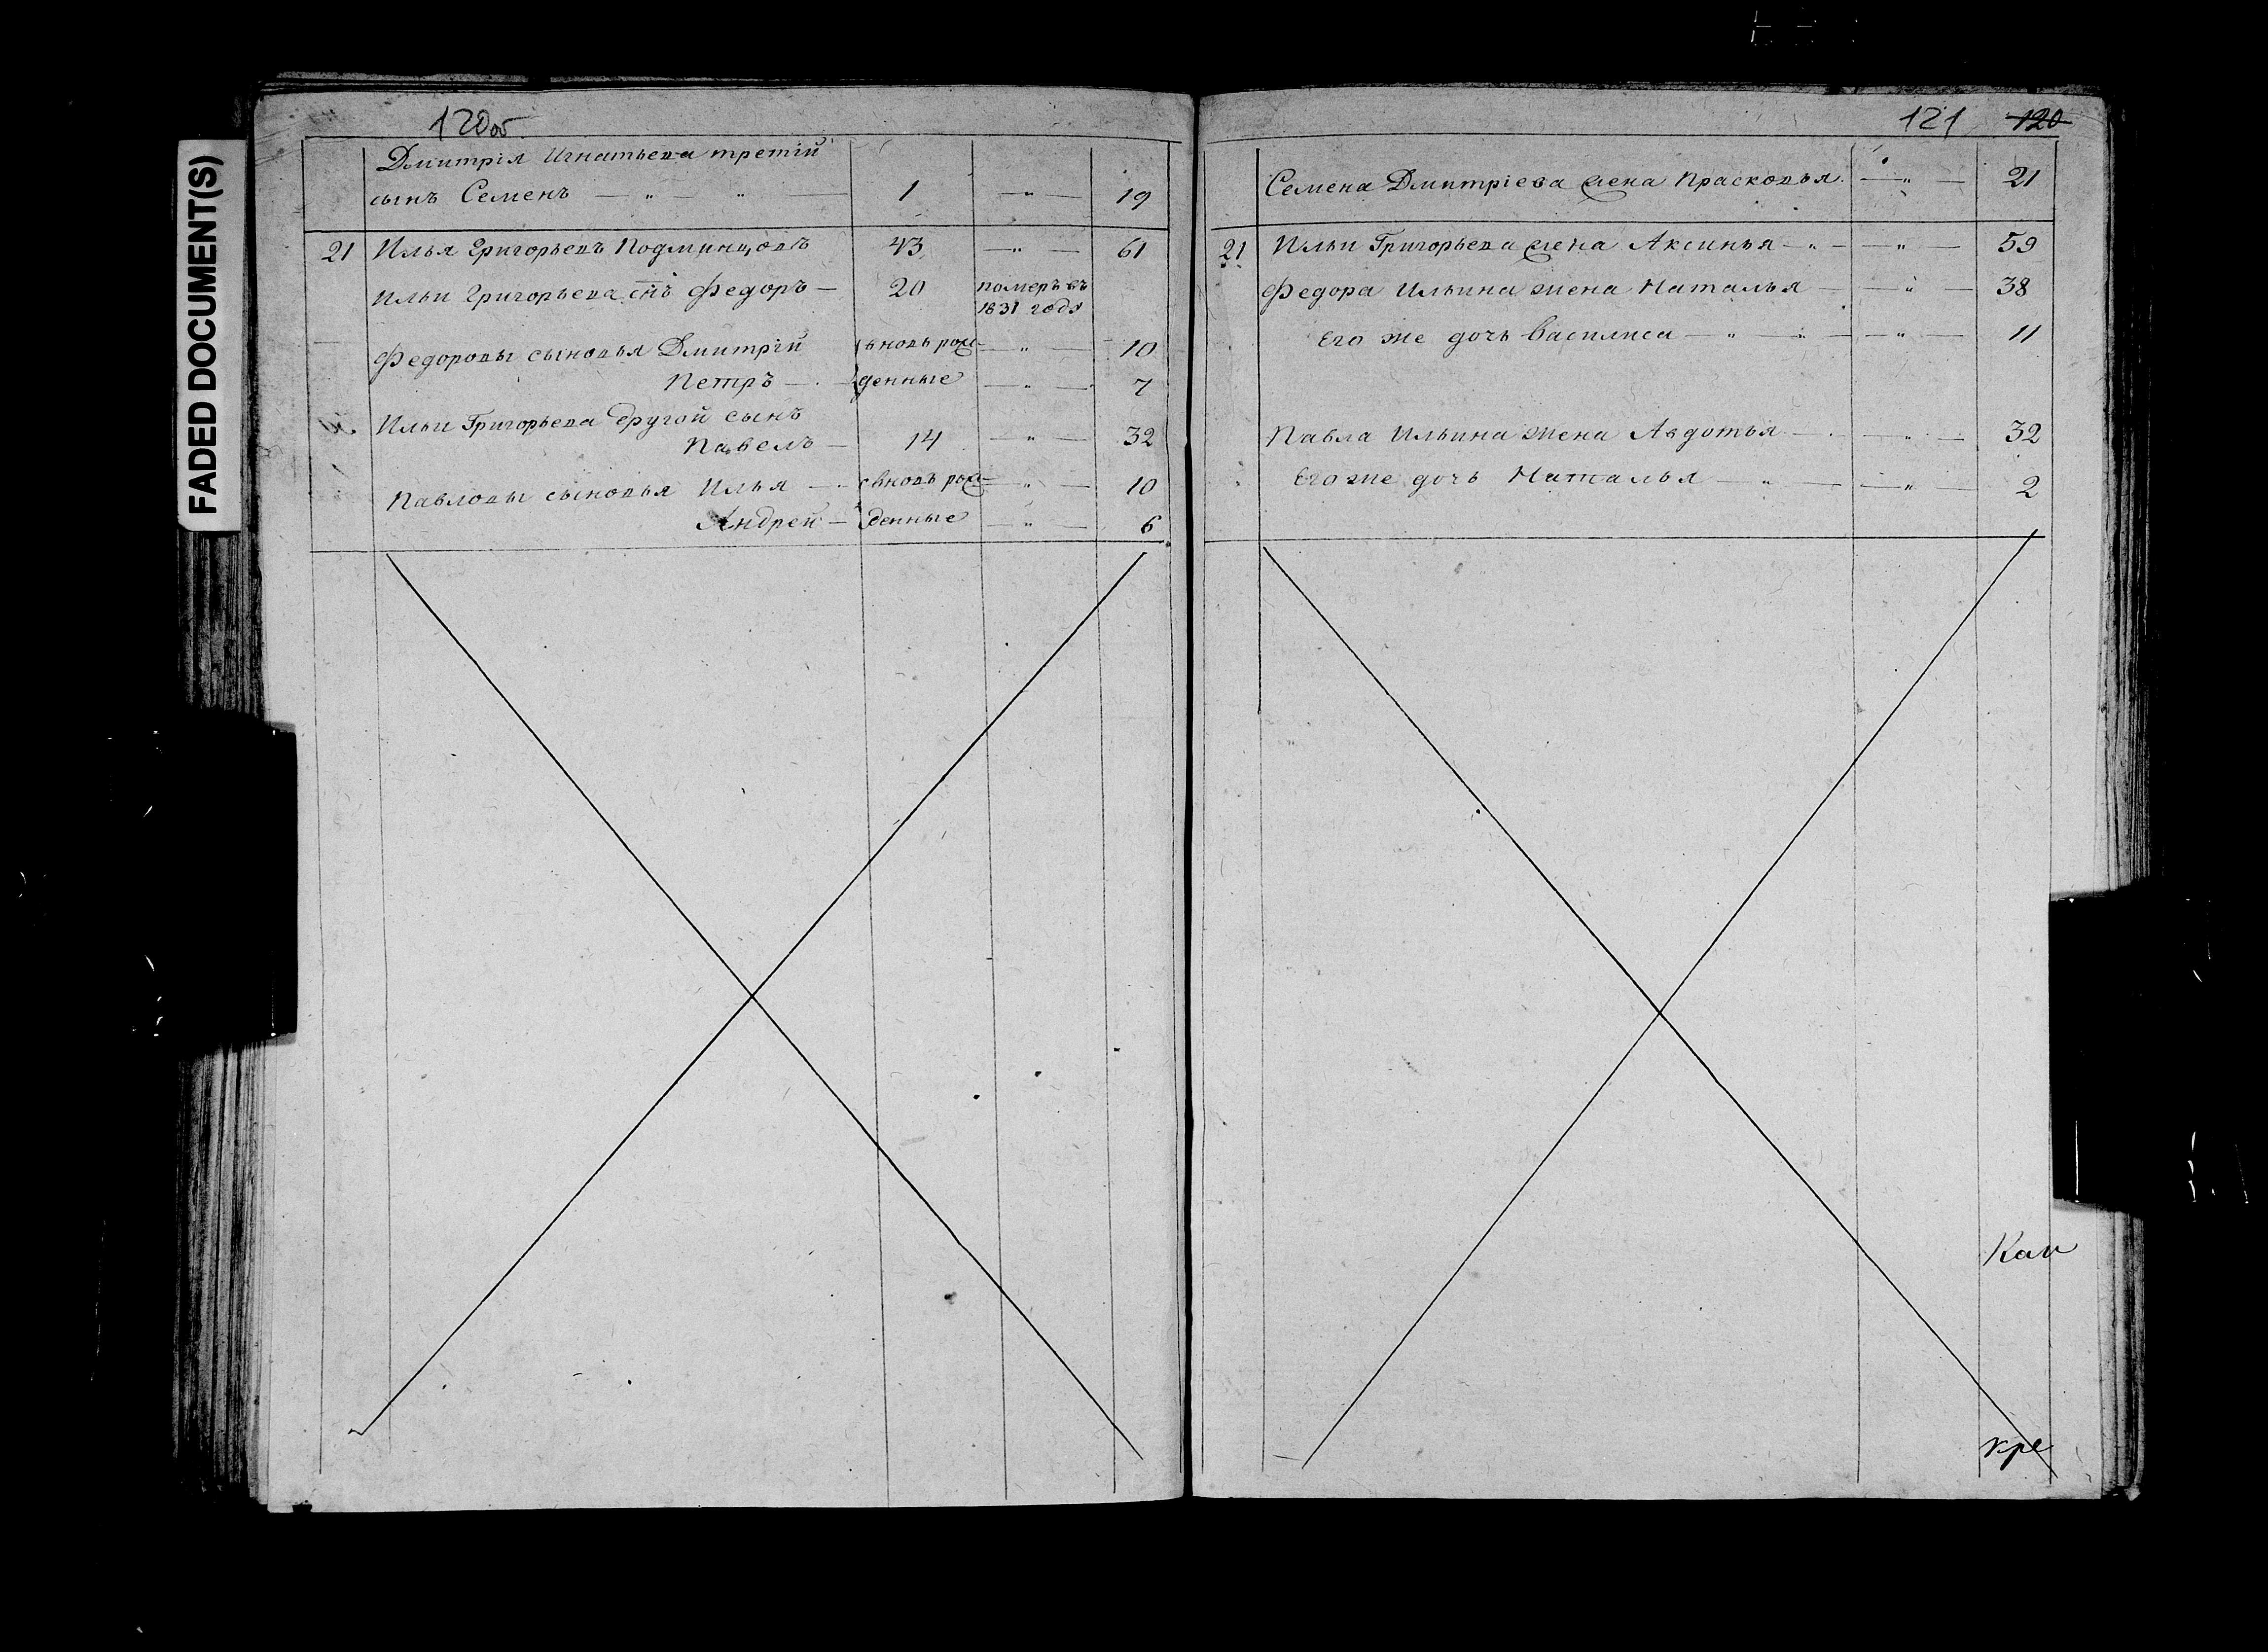 FADED DOCUMENT(S)
120 об
Дмитрія Игнатьева третій
сынъ Семенъ — " — " — 1 — " — 19
21 Илья Григорьевъ Подминцовъ 43 — " — 61
Ильи Григорьева снъ Федоръ — 20 померъ въ
1831 году
Федоровы сыновья Дмитрій вновь рож- — " — 10
Петръ — денные — " — 7
Ильи Григорьева другой сынъ
Павелъ — 14 — " — 32
Павловы сыновья Илья — вновь рож- — " — 10
Андрей — денные — " — 6
121 120
Семена Дмитріева жена Прасковья — " — 21
21 Ильи Григорьева жена Аксинья — " — — " — 59
Федора Ильина жена Наталья — — " — 38
Его же дочь Василиса — " — " — — " — 11
Павла Ильина жена Авдотья — — " — 32
Его же дочь Наталья — " — — " — 2
Кан
кре